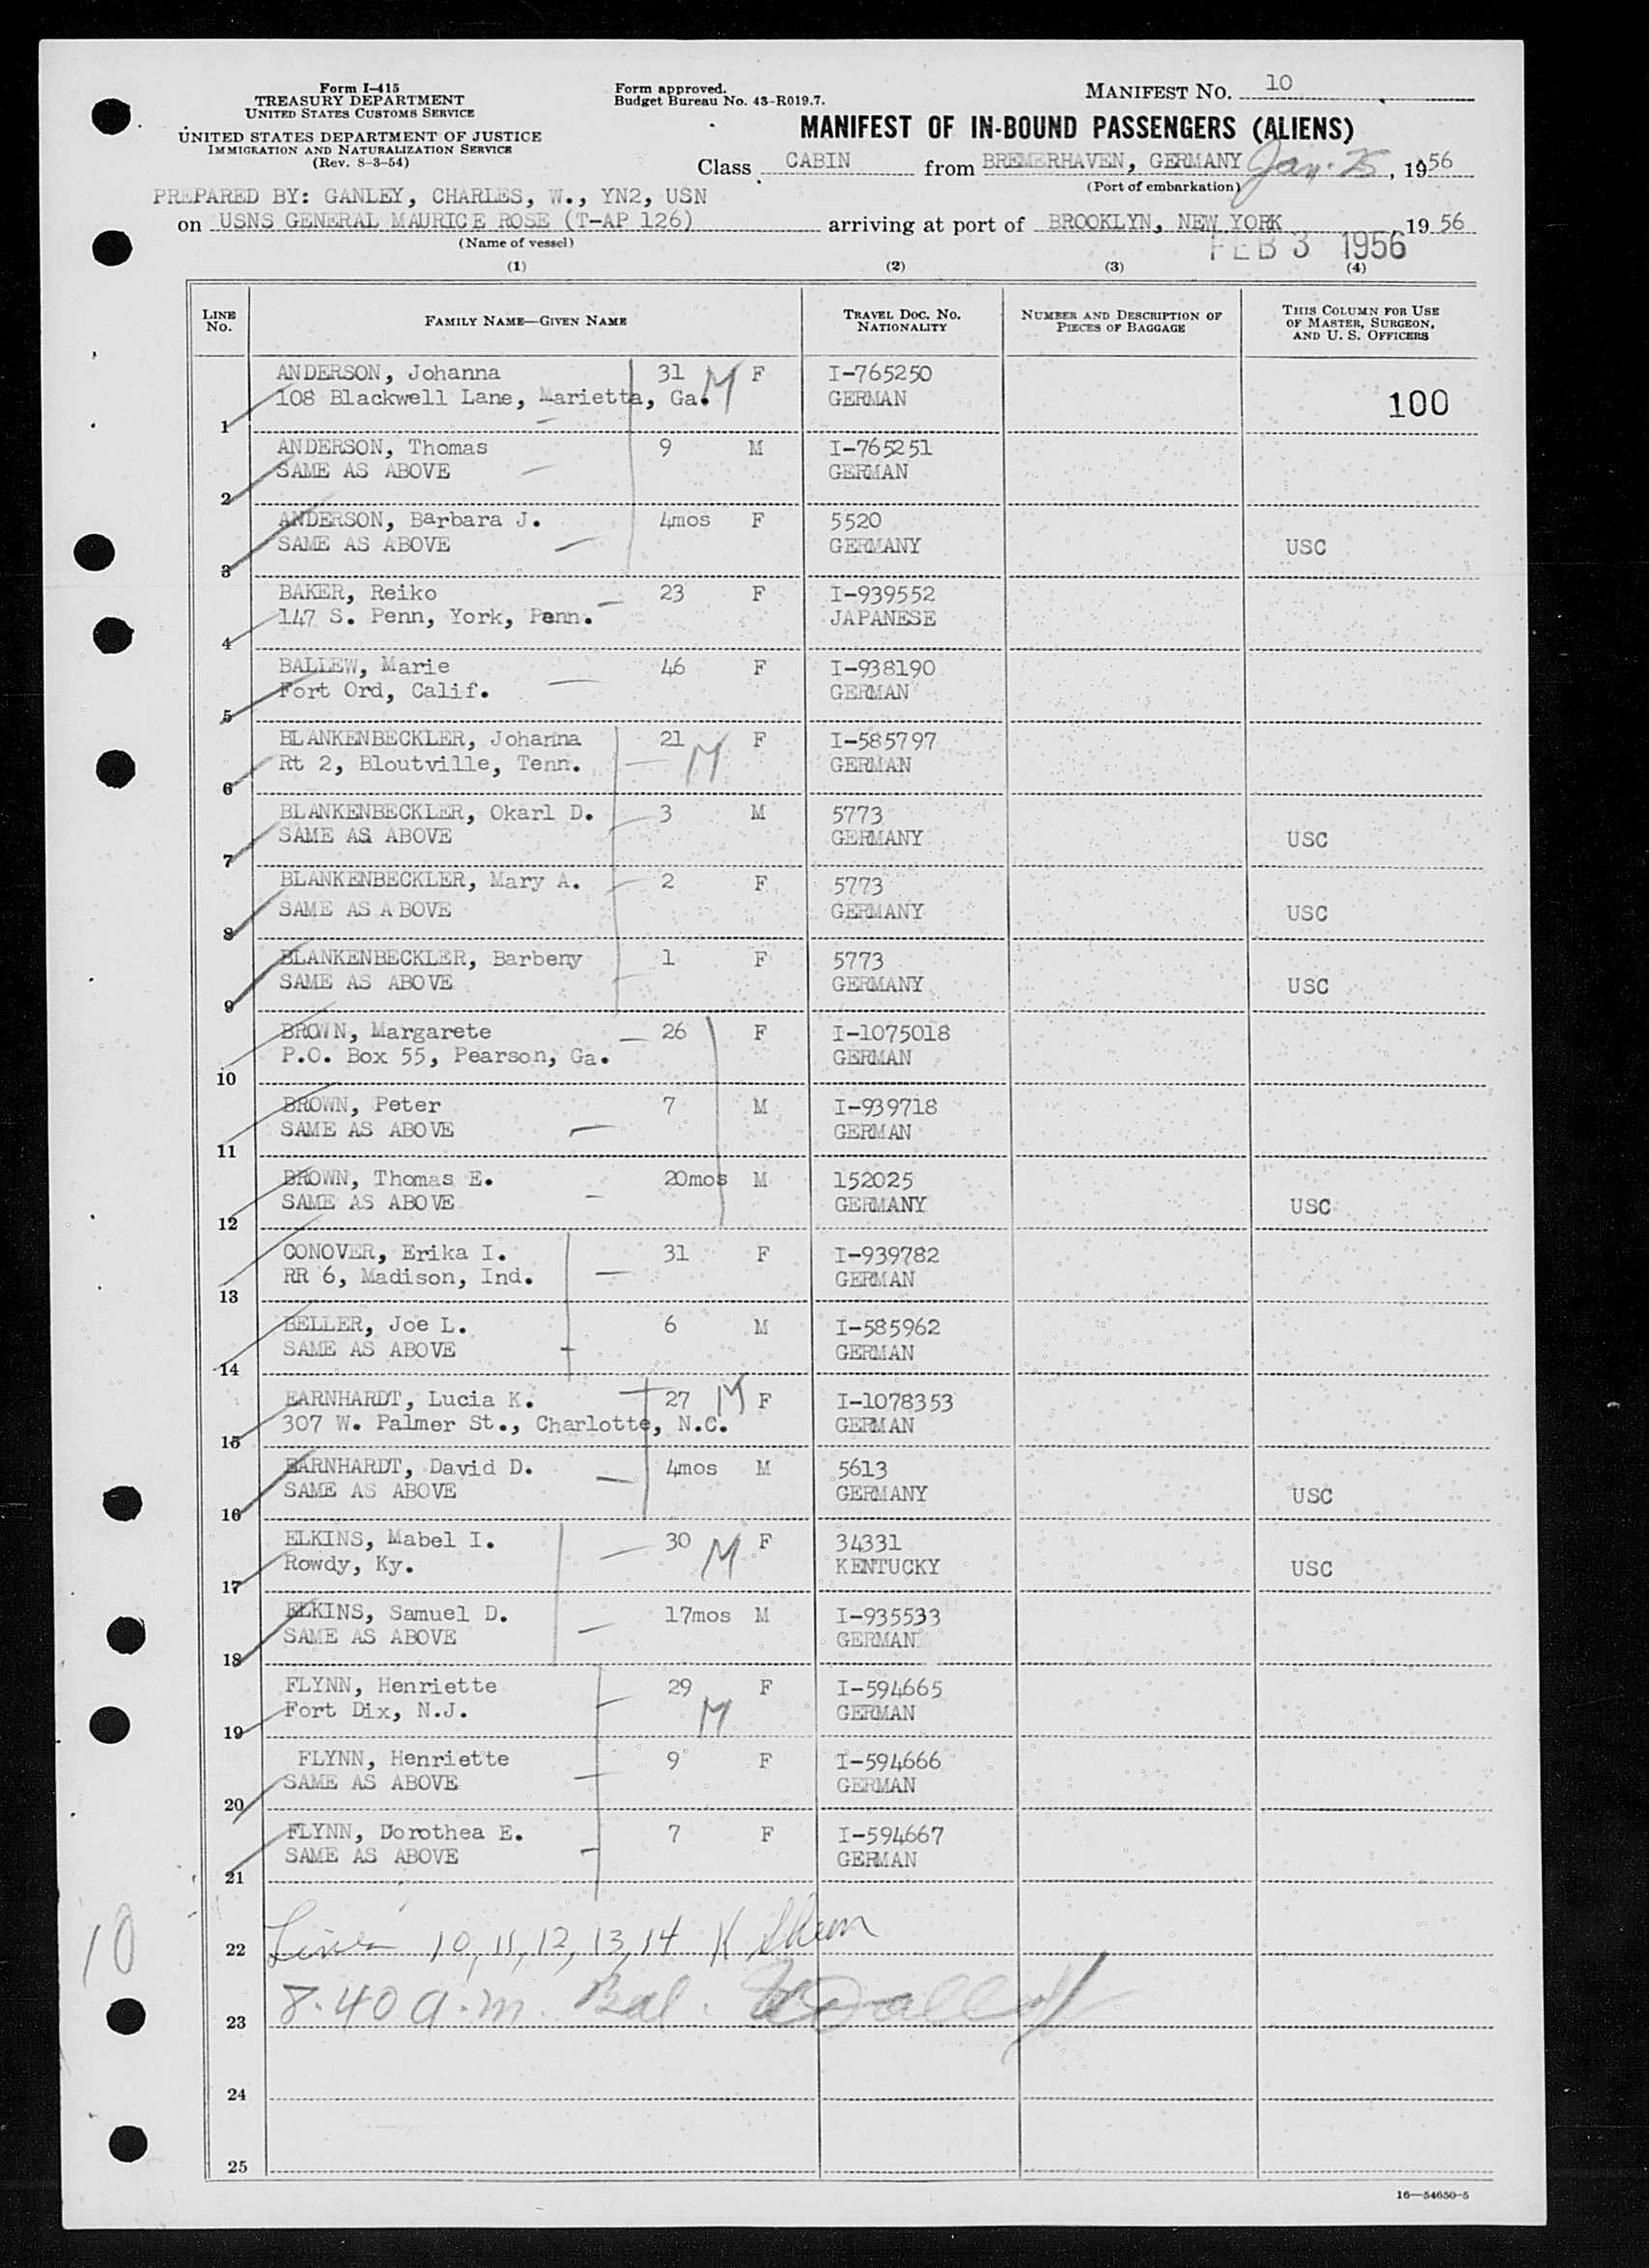 Form I-415
TREASURY DEPARTMENT
UNITED STATES CUSTOMS SERVICE
UNITED STATES DEPARTMENT OF JUSTICE
IMMIGRATION AND NATURALIZATION SERVICE
(Rev. 8-3-54)
Form approved.
Budget Bureau No. 43-R019.7.
MANIFEST NO. 10
MANIFEST OF IN-BOUND PASSENGERS (ALIENS)
Class CABIN from BREMERHAVEN, GERMANY Jan. 25, 1956
(Port of embarkation)
PREPARED BY: GANLEY, CHARLES, W., YN2, USN
on USNS GENERAL MAURICE ROSE (T-AP 126) arriving at port of BROOKLYN, NEW YORK, 1956
(Name of vessel)
FEB 3 1956
(1) (2) (3) (4)
LINE NO. FAMILY NAME—GIVEN NAME TRAVEL DOC. NO. NATIONALITY NUMBER AND DESCRIPTION OF PIECES OF BAGGAGE THIS COLUMN FOR USE OF MASTER, SURGEON, AND U. S. OFFICERS
ANDERSON, Johanna 31 M F I-765250
108 Blackwell Lane, Marietta, Ga. GERMAN 100
1
ANDERSON, Thomas 9 M I-765251
SAME AS ABOVE GERMAN
2
ANDERSON, Barbara J. 4mos F 5520
SAME AS ABOVE GERMANY USC
3
BAKER, Reiko 23 F I-939552
147 S. Penn, York, Penn. JAPANESE
4
BALLEW, Marie 46 F I-938190
Fort Ord, Calif. GERMAN
5
BLANKENBECKLER, Johanna 21 M F I-585797
Rt 2, Bloutville, Tenn. GERMAN
6
BLANKENBECKLER, Okarl D. 3 M 5773
SAME AS ABOVE GERMANY USC
7
BLANKENBECKLER, Mary A. 2 F 5773
SAME AS ABOVE GERMANY USC
8
BLANKENBECKLER, Barbeny 1 F 5773
SAME AS ABOVE GERMANY USC
9
BROWN, Margarete 26 F I-1075018
P.O. Box 55, Pearson, Ga. GERMAN
10
BROWN, Peter 7 M I-939718
SAME AS ABOVE GERMAN
11
BROWN, Thomas E. 20mos M 152025
SAME AS ABOVE GERMANY USC
12
CONOVER, Erika I. 31 F I-939782
RR 6, Madison, Ind. GERMAN
13
BELLER, Joe L. 6 M I-585962
SAME AS ABOVE GERMAN
14
EARNHARDT, Lucia K. 27 M F I-1078353
307 W. Palmer St., Charlotte, N.C. GERMAN
15
EARNHARDT, David D. 4mos M 5613
SAME AS ABOVE GERMANY USC
16
ELKINS, Mabel I. 30 M F 34331
Rowdy, Ky. KENTUCKY USC
17
ELKINS, Samuel D. 17mos M I-935533
SAME AS ABOVE GERMAN
18
FLYNN, Henriette 29 F I-594665
Fort Dix, N.J. M GERMAN
19
FLYNN, Henriette 9 F I-594666
SAME AS ABOVE GERMAN
20
FLYNN, Dorothea E. 7 F I-594667
SAME AS ABOVE GERMAN
21
10
22 Lines 10, 11, 12, 13, 14
23 8.40 a.m. Bal.
24
25
16—54650-5